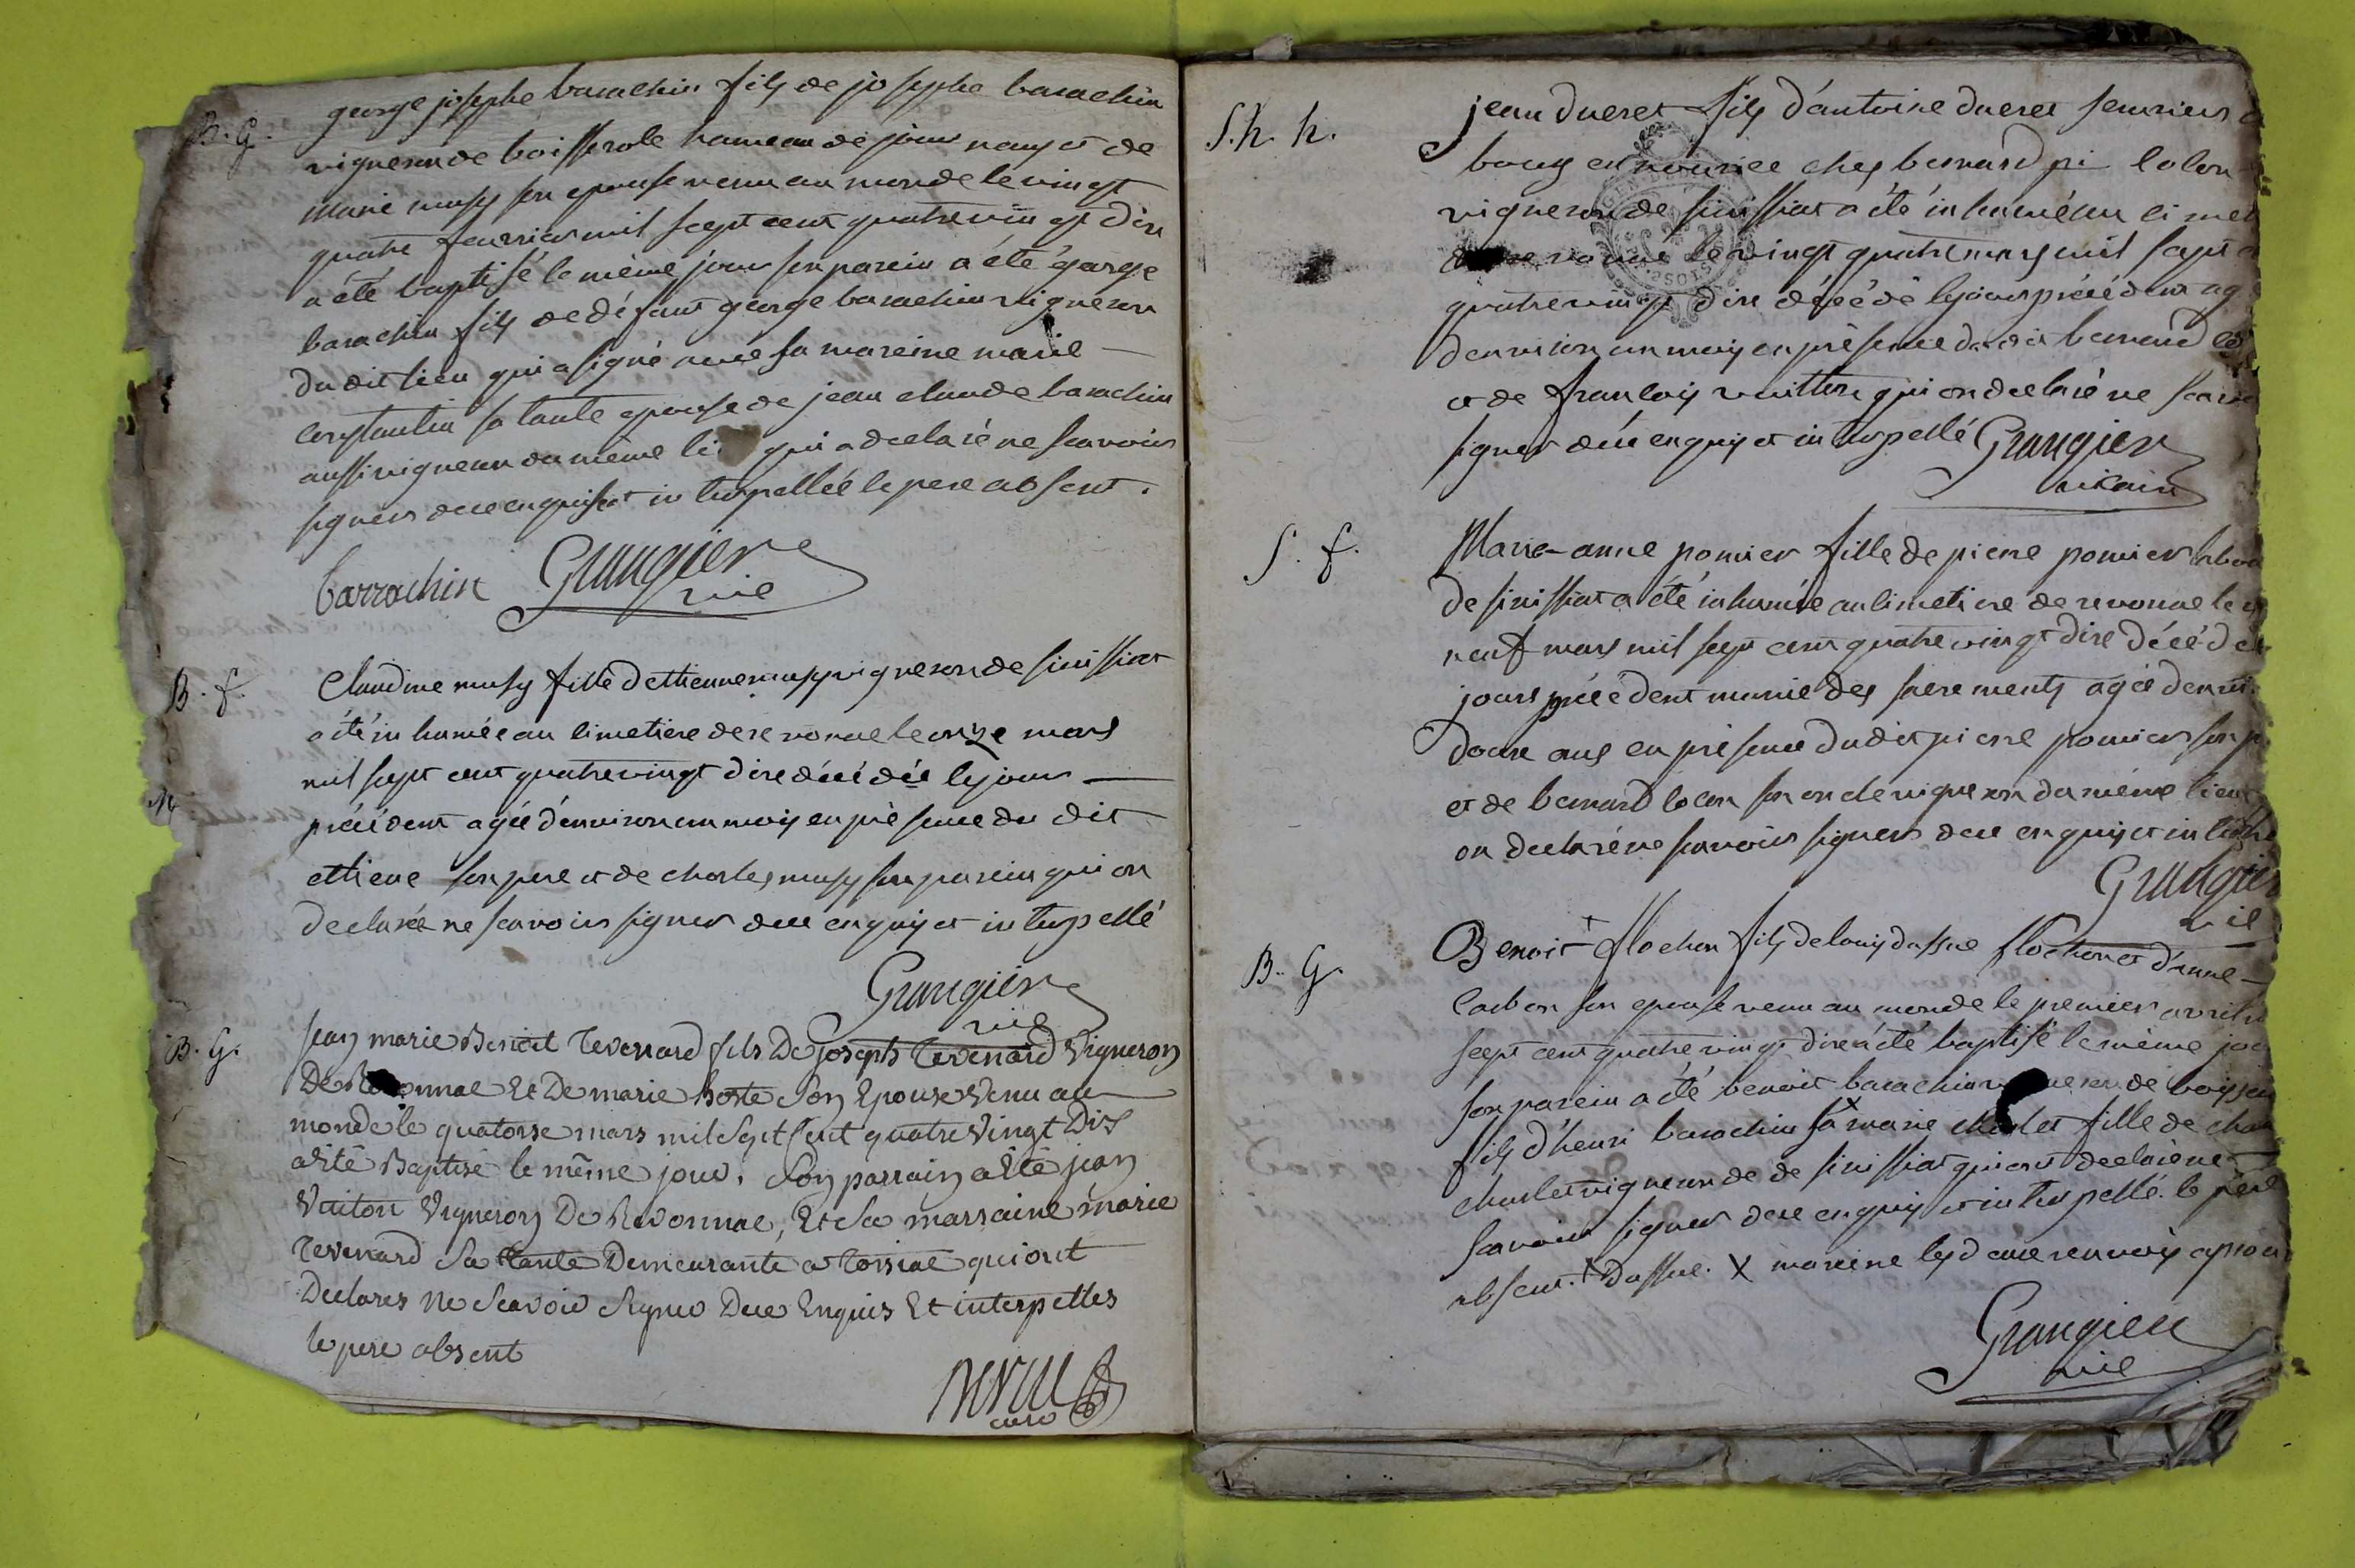 B. G.
george josephe barachin fils de josephe barachin
vigneron de boisserole hameau de jour nans et de
marie musy son epouse venu au monde le vingt
quatre fevrier mil sept cent quatre vingt dix
a été baptisé le même jour son parein a été george
barachin fils de défunt george barachin vigneron
du dit lieu qui a signé avec sa mareine marie
constantin sa tante epouse de jean claude barachin
aussi vigneron du même li qui a declaré ne scavoir
signer de ce enquise et interpellée le pere absent.
barrachin Grangier
vic
B. f.
Claudine musy fille d'ettienne musy vigneron de sinissiat
a été inhumée au cimetiere de revonnae le onze mars
mil sept cent quatre vingt dix décédée le jour
précédent agée d'environ un mois en présence du dit
ettiene son pere et de charles musy son parein qui on
declaré ne scavoir signer de ce enquis et interpellé
Grangier
vic
B. G.
Jean marie Benoit Tevenard fils De joseph Tevenard Vigneron
De Et De marie hoste Son Epouse Venu au
monde le quatorse mars mil Sept Cent quatre Vingt Dix
a Eté Baptisé le même jour. Son parrain a Eté jean
Vuiton Vigneron De Revonnae, Et Sa marraine marie
Tevenard Sa tante Demeurante a tossiae qui ont
Declarés Ne Scavoir Signer De ce Enquis Et interpellés
le pere absent
curé
S. h. h.
jean ducret fils d'antoine ducret
bourg en nourrice chez bernard pi colon
vigneron de sinissiat a été inhumé au cimet
revonnae le vingt quatre mars mil sept c
quatre vingt dix décédé le jour précédent ag
d'environ un mois en présence du dit bernard
et de françois vuitton qui on declaré ne scavoir
signer de ce enquis et interpellé Grangier
vicaire
S. f.
Marie-anne pomier fille de pierre pomier
de sinissiat a été inhumée au cimetiere de revonnae le
neuf mars mil sept cent quatre vingt dix décédée
jour précédent munie des sacrements agée d'envi
douze ans en présence du dit pierre pomier son p
et de bernard colon son oncle vigneron du même lieu
on declaré ne scavoir signer de ce enquis et inter
Grangier
vic
B. G.
Benoit flochon fils de louis dassue flochon et d'anne
carbon son epouse venu au monde le premier avril
sept cent quatre vingt dix a été baptisé le même jou
son parein a été benoit barachin de
fils d'henri barachin sa X marie fille de
charles vigneron de de sinissiat qui ont declaré ne
scavoir signer de ce enquis et interpellé. le pere
absent. X dassue. X mareine les deux renvois
Grangier
vic